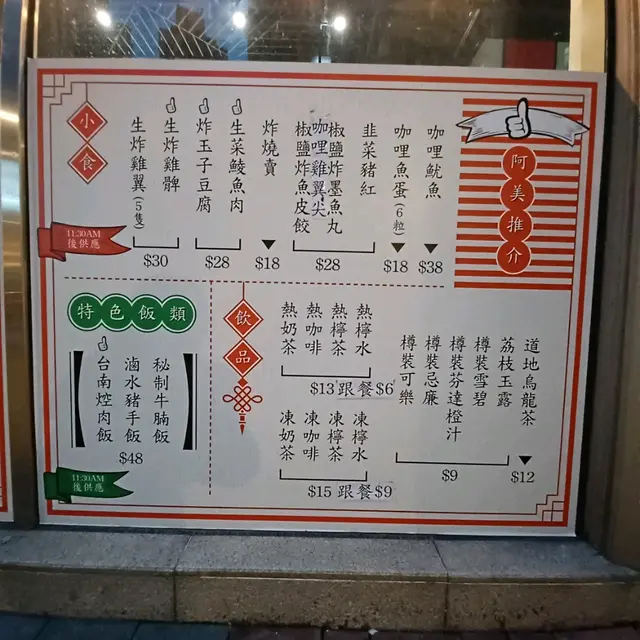 阿美推介
小食
11:30AM
後供應
咖哩魷魚
$38
咖哩魚蛋(6粒)
$18
韮菜豬紅
椒鹽炸墨魚丸
咖哩雞翼尖
椒鹽炸魚皮餃
$28
炸燒賣
$18
生菜鯪魚肉
炸玉子豆腐
$28
生炸雞髀
生炸雞翼(5隻)
$30
特色飯類
秘制牛腩飯
滷水豬手飯
台南焢肉飯
$48
11:30AM
後供應
飲品
熱檸水
熱檸茶
熱咖啡
熱奶茶
$13跟餐$6
凍檸水
凍檸茶
凍咖啡
凍奶茶
$15 跟餐$9
道地烏龍茶
$12
荔枝玉露
樽裝雪碧
樽裝芬達橙汁
樽裝忌廉
樽裝可樂
$9